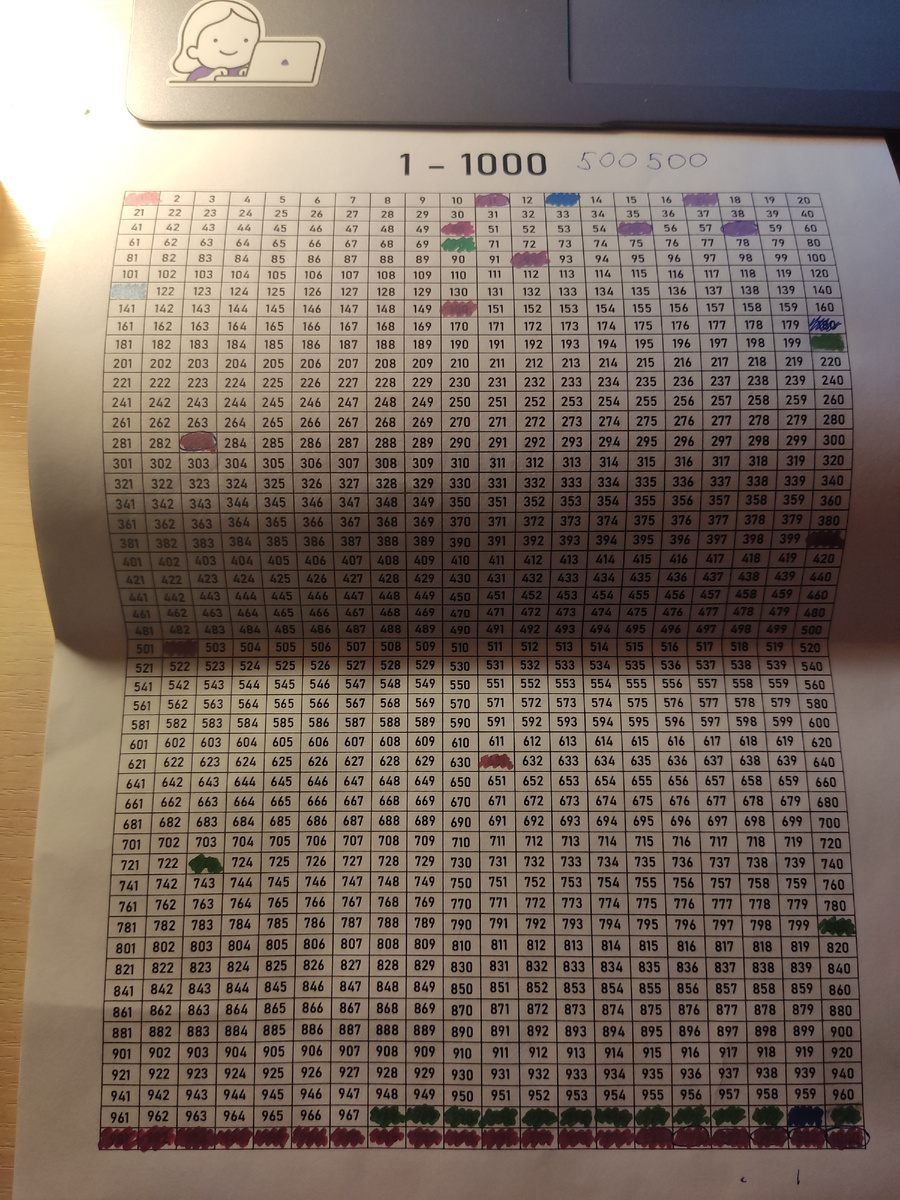 1 – 1000 500500
2 3 4 5 6 7 8 9 10 12 14 15 16 18 19 20
21 22 23 24 25 26 27 28 29 30 31 32 33 34 35 36 37 38 39 40
41 42 43 44 45 46 47 48 49 51 52 53 54 56 57 59 60
61 62 63 64 65 66 67 68 69 71 72 73 74 75 76 77 78 79 80
81 82 83 84 85 86 87 88 89 90 91 93 94 95 96 97 98 99 100
101 102 103 104 105 106 107 108 109 110 111 112 113 114 115 116 117 118 119 120
122 123 124 125 126 127 128 129 130 131 132 133 134 135 136 137 138 139 140
141 142 143 144 145 146 147 148 149 151 152 153 154 155 156 157 158 159 160
161 162 163 164 165 166 167 168 169 170 171 172 173 174 175 176 177 178 179
181 182 183 184 185 186 187 188 189 190 191 192 193 194 195 196 197 198 199
201 202 203 204 205 206 207 208 209 210 211 212 213 214 215 216 217 218 219 220
221 222 223 224 225 226 227 228 229 230 231 232 233 234 235 236 237 238 239 240
241 242 243 244 245 246 247 248 249 250 251 252 253 254 255 256 257 258 259 260
261 262 263 264 265 266 267 268 269 270 271 272 273 274 275 276 277 278 279 280
281 282 284 285 286 287 288 289 290 291 292 293 294 295 296 297 298 299 300
301 302 303 304 305 306 307 308 309 310 311 312 313 314 315 316 317 318 319 320
321 322 323 324 325 326 327 328 329 330 331 332 333 334 335 336 337 338 339 340
341 342 343 344 345 346 347 348 349 350 351 352 353 354 355 356 357 358 359 360
361 362 363 364 365 366 367 368 369 370 371 372 373 374 375 376 377 378 379 380
381 382 383 384 385 386 387 388 389 390 391 392 393 394 395 396 397 398 399
401 402 403 404 405 406 407 408 409 410 411 412 413 414 415 416 417 418 419 420
421 422 423 424 425 426 427 428 429 430 431 432 433 434 435 436 437 438 439 440
441 442 443 444 445 446 447 448 449 450 451 452 453 454 455 456 457 458 459 460
461 462 463 464 465 466 467 468 469 470 471 472 473 474 475 476 477 478 479 480
481 482 483 484 485 486 487 488 489 490 491 492 493 494 495 496 497 498 499 500
501 503 504 505 506 507 508 509 510 511 512 513 514 515 516 517 518 519 520
521 522 523 524 525 526 527 528 529 530 531 532 533 534 535 536 537 538 539 540
541 542 543 544 545 546 547 548 549 550 551 552 553 554 555 556 557 558 559 560
561 562 563 564 565 566 567 568 569 570 571 572 573 574 575 576 577 578 579 580
581 582 583 584 585 586 587 588 589 590 591 592 593 594 595 596 597 598 599 600
601 602 603 604 605 606 607 608 609 610 611 612 613 614 615 616 617 618 619 620
621 622 623 624 625 626 627 628 629 630 632 633 634 635 636 637 638 639 640
641 642 643 644 645 646 647 648 649 650 651 652 653 654 655 656 657 658 659 660
661 662 663 664 665 666 667 668 669 670 671 672 673 674 675 676 677 678 679 680
681 682 683 684 685 686 687 688 689 690 691 692 693 694 695 696 697 698 699 700
701 702 703 704 705 706 707 708 709 710 711 712 713 714 715 716 717 718 719 720
721 722 724 725 726 727 728 729 730 731 732 733 734 735 736 737 738 739 740
741 742 743 744 745 746 747 748 749 750 751 752 753 754 755 756 757 758 759 760
761 762 763 764 765 766 767 768 769 770 771 772 773 774 775 776 777 778 779 780
781 782 783 784 785 786 787 788 789 790 791 792 793 794 795 796 797 798 799
801 802 803 804 805 806 807 808 809 810 811 812 813 814 815 816 817 818 819 820
821 822 823 824 825 826 827 828 829 830 831 832 833 834 835 836 837 838 839 840
841 842 843 844 845 846 847 848 849 850 851 852 853 854 855 856 857 858 859 860
861 862 863 864 865 866 867 868 869 870 871 872 873 874 875 876 877 878 879 880
881 882 883 884 885 886 887 888 889 890 891 892 893 894 895 896 897 898 899 900
901 902 903 904 905 906 907 908 909 910 911 912 913 914 915 916 917 918 919 920
921 922 923 924 925 926 927 928 929 930 931 932 933 934 935 936 937 938 939 940
941 942 943 944 945 946 947 948 949 950 951 952 953 954 955 956 957 958 959 960
961 962 963 964 965 966 967